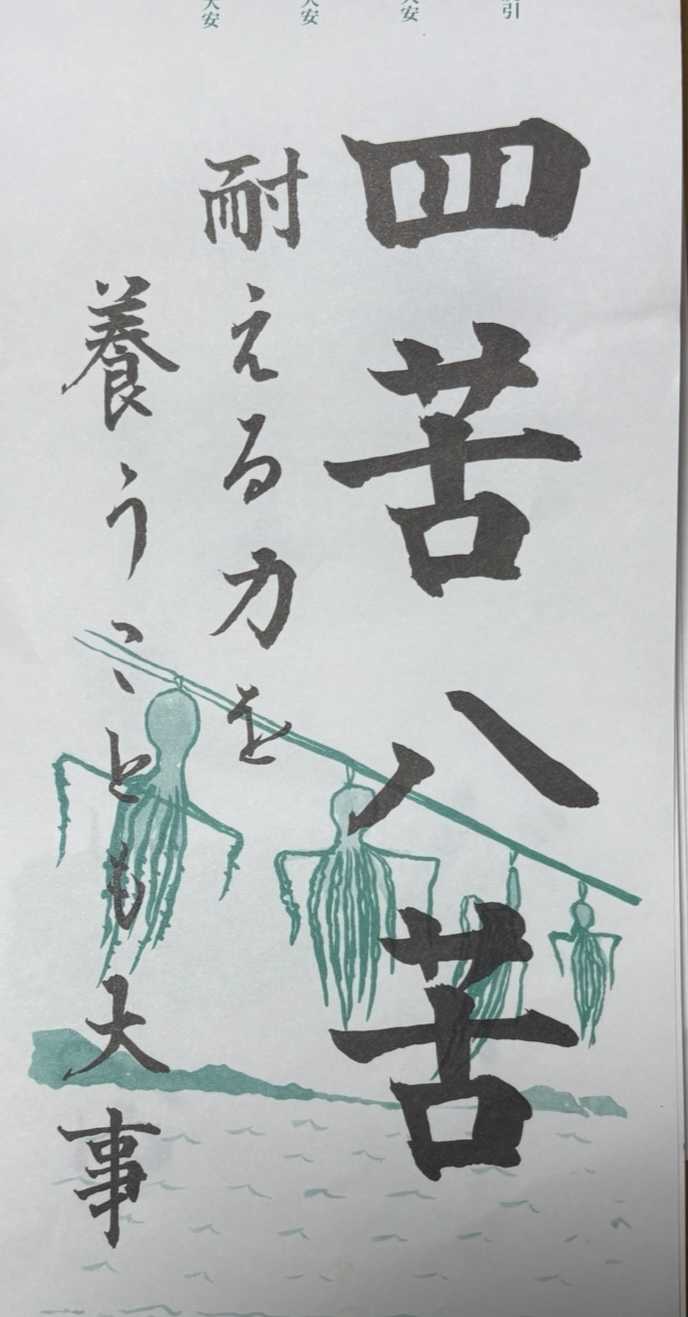 引
大安
大安
大安
四苦八苦
耐える力を
養うことも大事